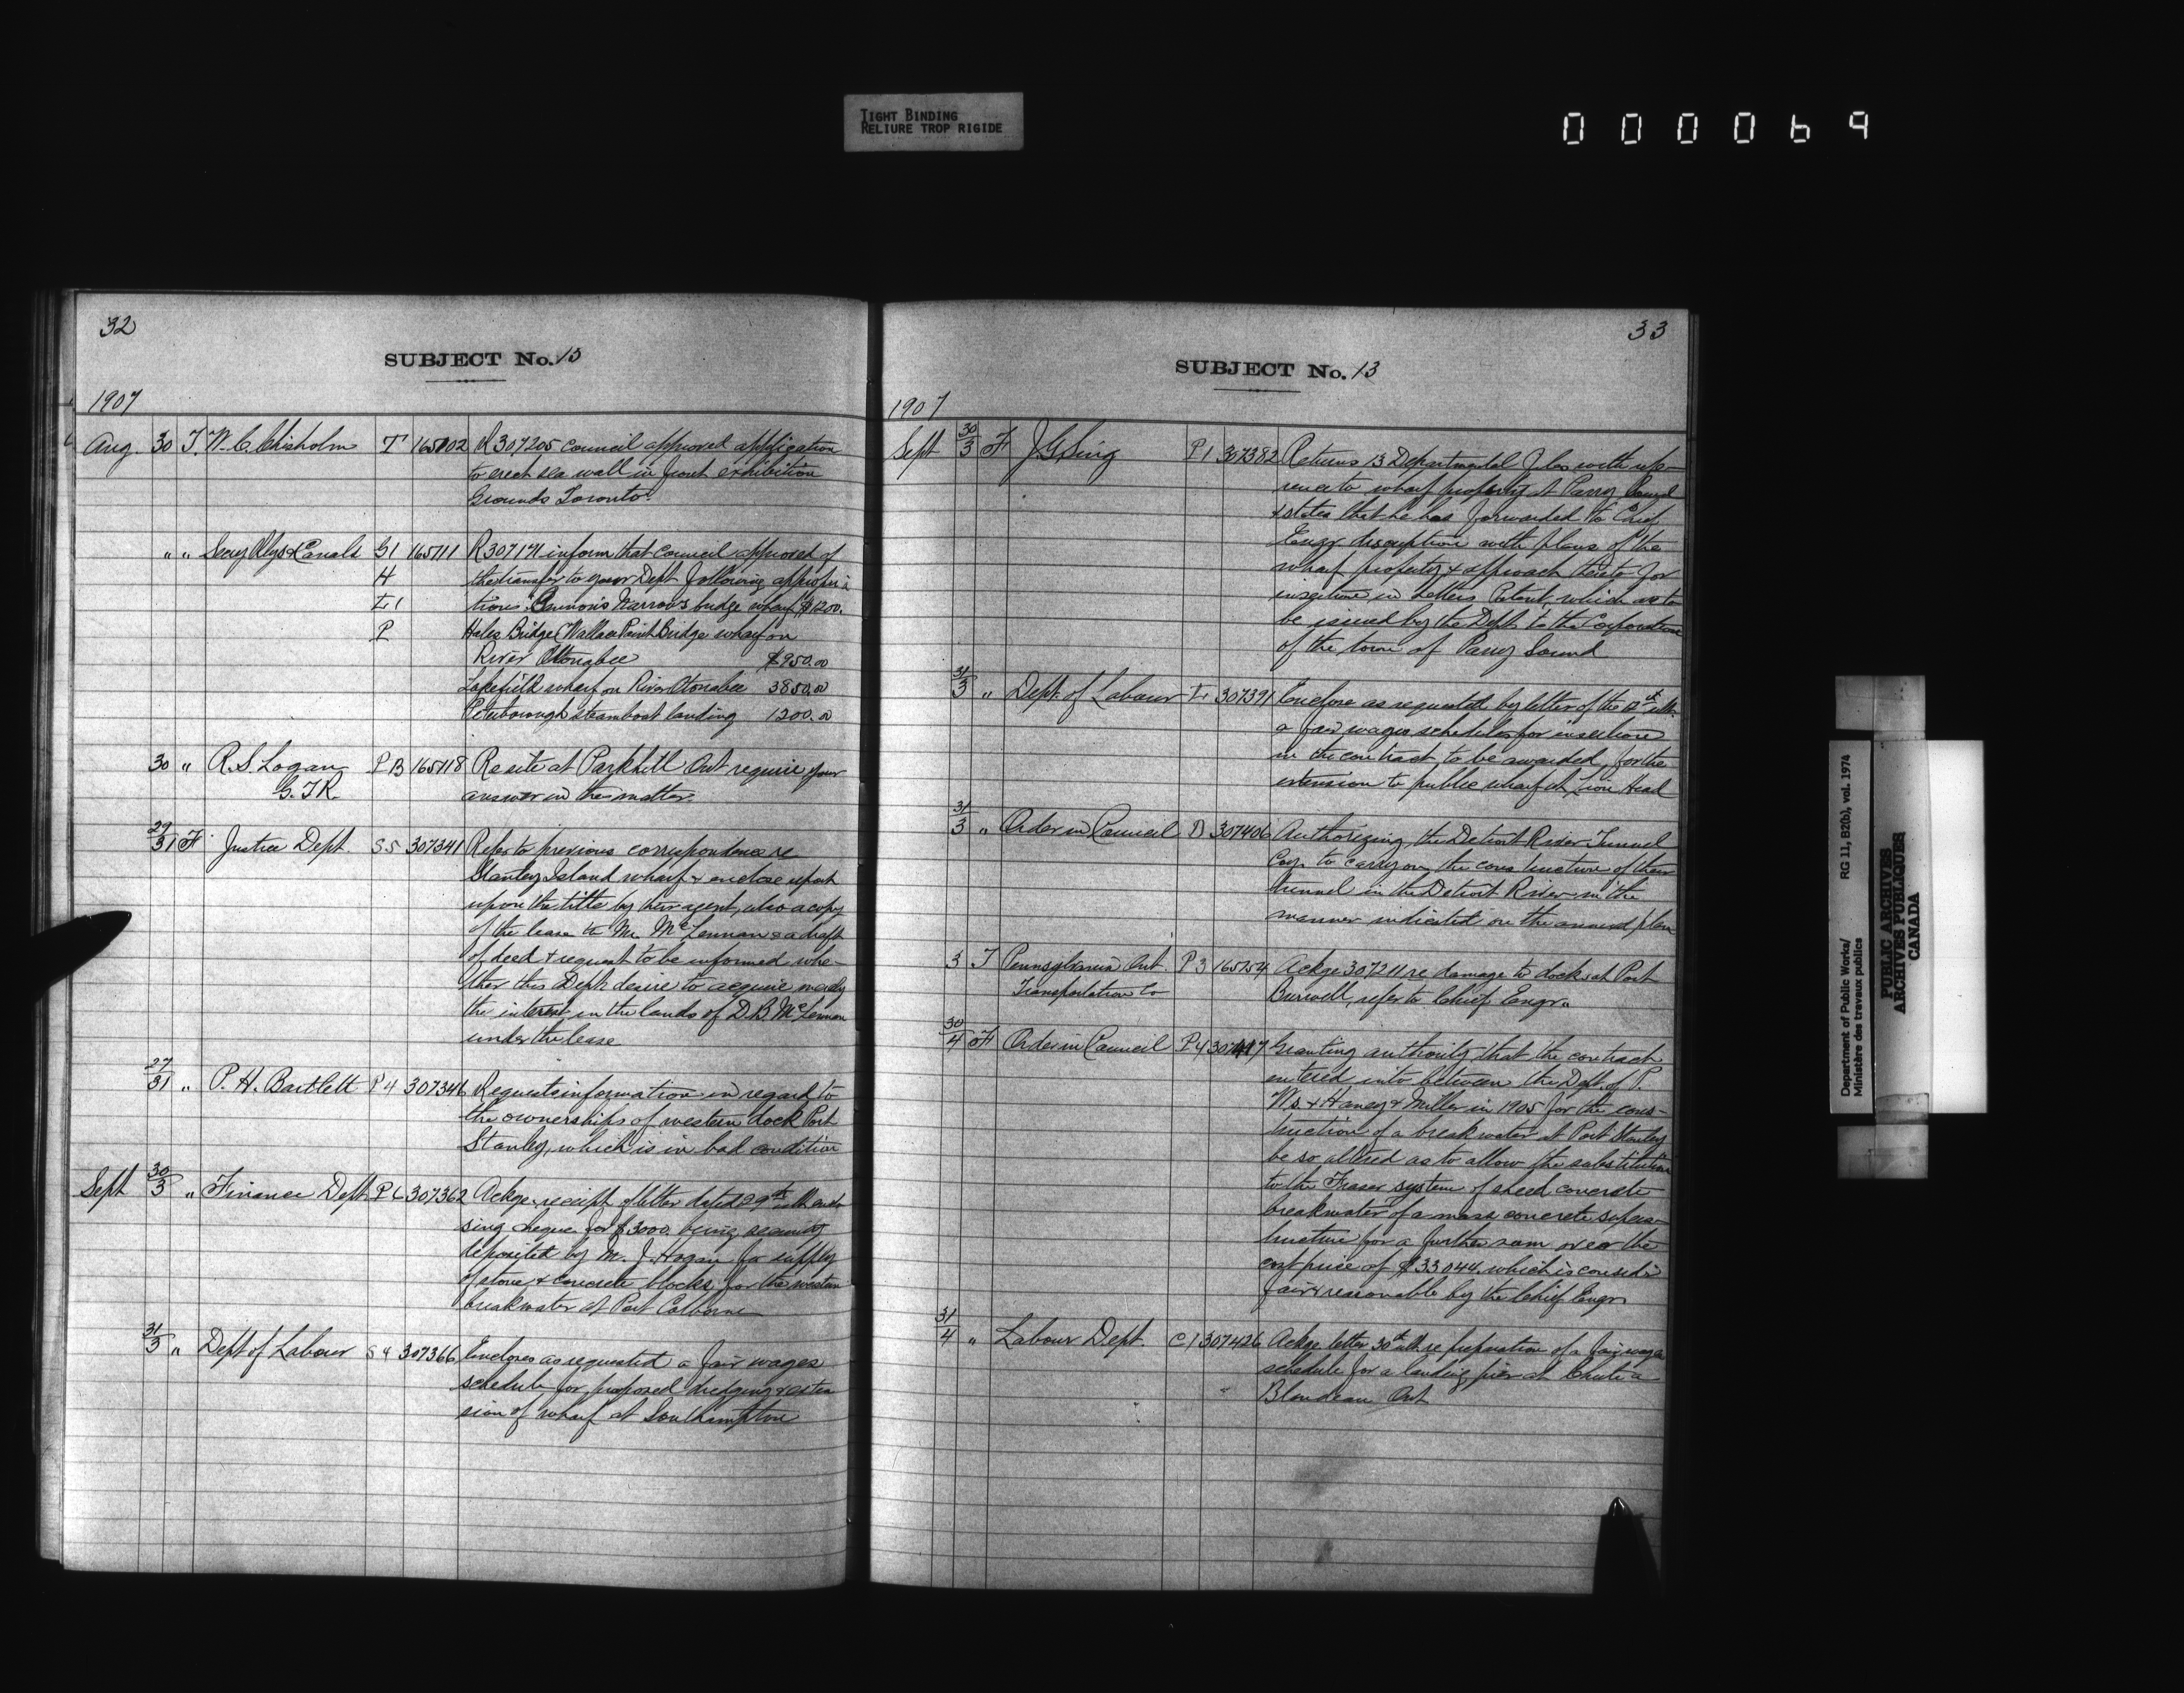 TIGHT BINDING
RELIURE TROP RIGIDE
000069
32
SUBJECT No. 13
1907
Aug. 30 T. W. C. Chisholm T 165102 R 307205 council approved application
to erect sea wall in front exhibition
Grounds Toronto.
" " Secy Rlys & Canals G1 165111 R 307171 inform that Council approved of
H the transfer to your Dept following appropria
L1 tions. Gannon's Narrows bridge wharf $1200.
P Hales Bridge (Wallace Point Bridge wharf on
River Otonabee $950.00
Lakefield wharf on River Otonabee 3850.00
Peterborough steamboat landing 1200.00
30 " R. S. Logan P B 165118 Re site at Parkhill Ont require your
G. T. R. answer in the matter.
29/31 F Justice Dept. S5 307341 Refer to previous correspondence re
Stanley Island wharf & enclose report
upon the title by their agent, also a copy
of the lease to Mr. McLennan & a draft
of deed & request to be informed whe-
ther this Dept desire to acquire merely
the interest in the lands of D. B. McLennan
under the lease
27/31 " P. H. Bartlett P4 307346 Requests information in regard to
the ownerships of western dock Port
Stanley, which is in bad condition
Sept 30/3 " Finance Dept P6 307362 Ackge receipt of letter dated 29th ult enclo
sing cheque for $3000. being security
deposited by M. J. Hogan for supply
of stone & concrete blocks for the western
breakwater at Port Colborne
31/3 " Dept of Labour S4 307366 Encloses as requested a fair wages
schedule for proposed dredging & exten
sion of wharf at Southampton
33
SUBJECT No. 13
1907
Sept 30/3 F J G Sing P1 307382 Returns 13 Departmental files with refe-
rence to wharf property at Parry Sound
& states that he has forwarded to Chief
Engr. description with plans of the
wharf property & approach thereto for
insertion in Letters Patent, which are to
be issued by the Dept to the Corporation
of the town of Parry Sound
31/3 " Dept. of Labour L1 307391 Enclose as requested by letter of the ult.
a fair wages schedules for insertion
in the contract to be awarded, for the
extension to public wharf at Lion Head
31/3 " Order in Council D 307406 Authorizing the Detroit River Tunnel
Coy. to carry on the construction of their
tunnel in the Detroit River in the
manner indicated on the annexed plan
3 T Pennsylvania Ont. P3 165254 Ackge 307211 re damage to docks at Port
Transportation Co Burwell, refer to Chief Engr.
30/4 F Order in Council P4 307417 Granting authority that the contract
entered into between the Dept. of P.
Ws. & Haney & Miller in 1905 for the cons-
truction of a breakwater at Port Stanley
be so altered as to allow the substitution
to the Fraser system of sheed concrete
breakwater of a mass concrete supers-
tructure for a further sum over the
cost price of $33044. which is consid'd
fair & reasonable by the Chief Engr.
31/4 " Labour Dept. C1 307426 Ackge letter 30th ult re preparation of a fair wage
schedule for a landing pier at Chute a
Blondeau Ont
Department of Public Works/ RG 11, B2(b), vol. 1974
Ministère des travaux publics
PUBLIC ARCHIVES
ARCHIVES PUBLIQUES
CANADA